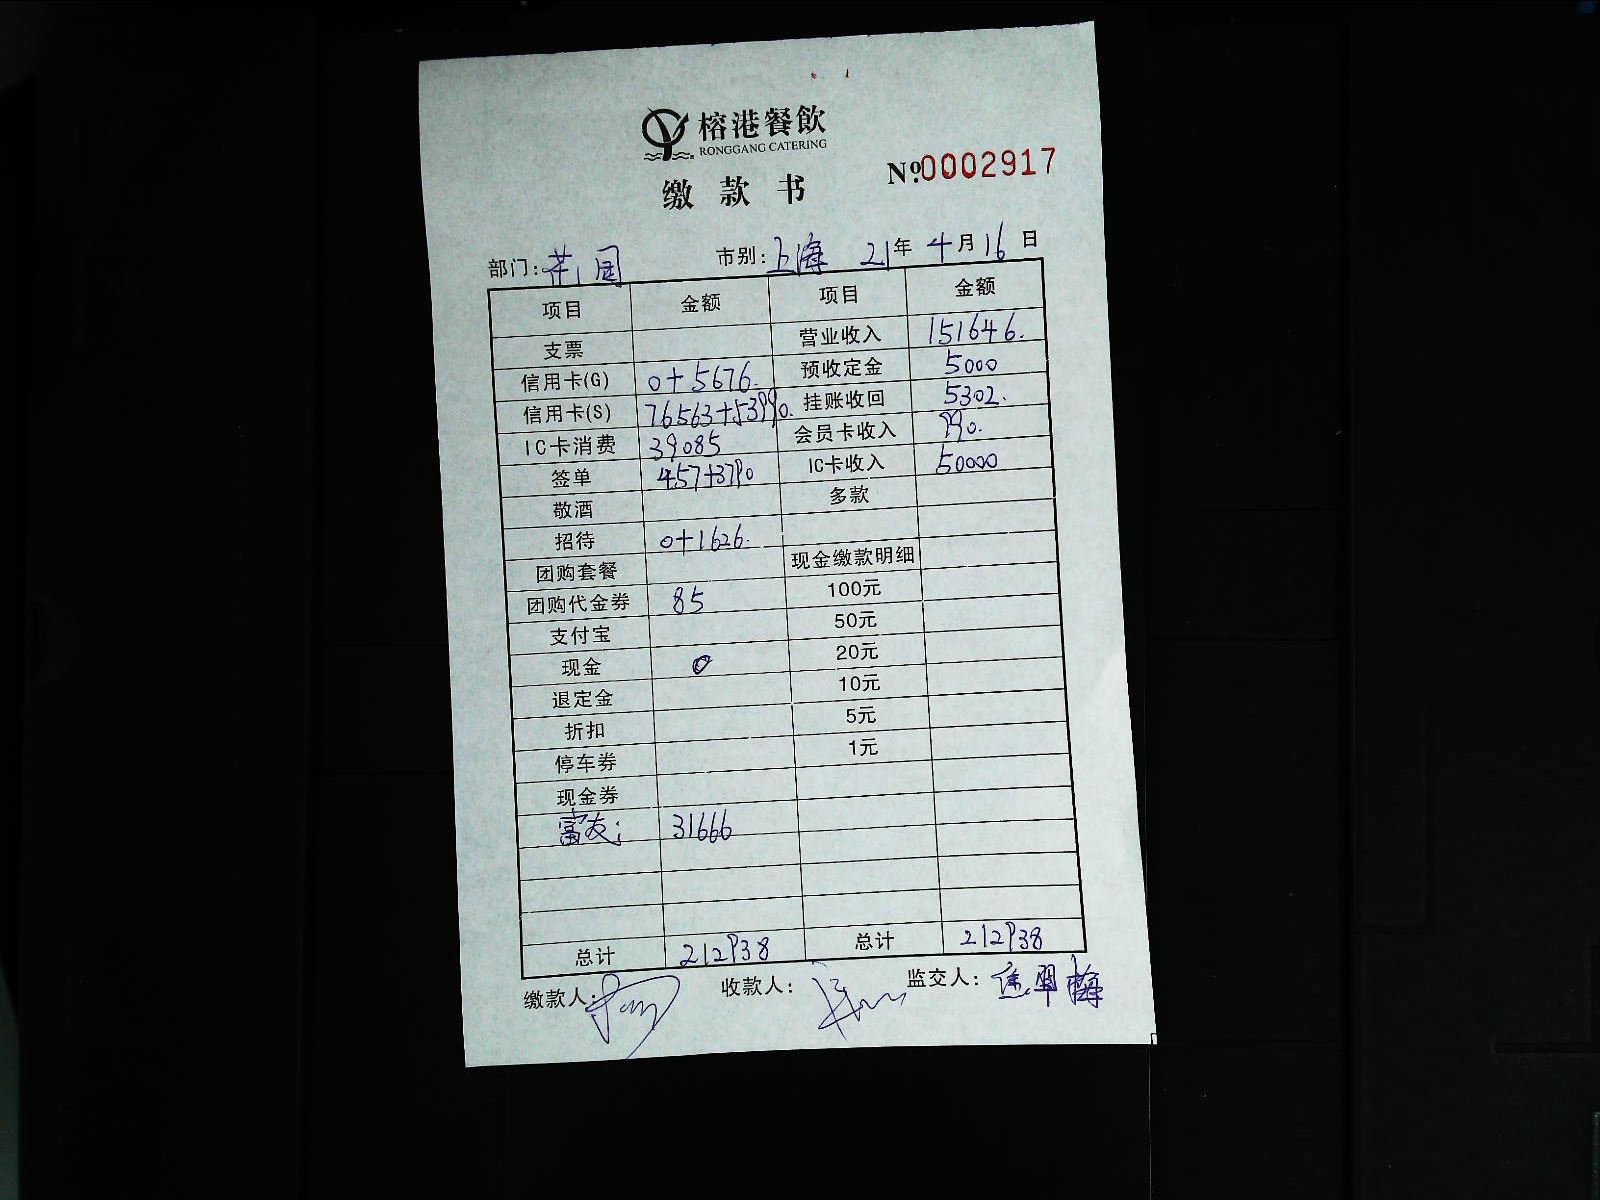 榕港餐飲
RONGGANG CATERING
№0002917
缴款书
部门: 花园 市别: 上海 21年 4月 16日
项目 金额 项目 金额
支票 营业收入 151646.
信用卡(G) 0+5676. 预收定金 5000
信用卡(S) 76563+53990. 挂账收回 5302.
IC卡消费 39085 会员卡收入 990.
签单 457+3790 IC卡收入 50000
敬酒 多款
招待 0+1626.
团购套餐 现金缴款明细
团购代金券 85 100元
支付宝 50元
现金 0 20元
退定金 10元
折扣 5元
停车券 1元
现金券
富友: 31666
总计 212938 总计 212938
缴款人: 收款人: 监交人: